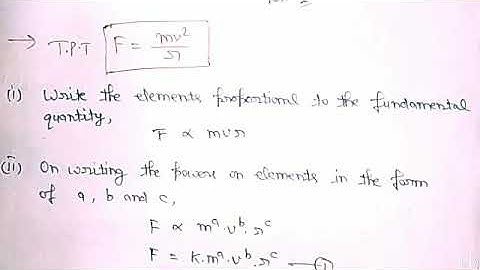 → T.P.T F = mv²/r
(i) Write the elements proportional to the fundamental
quantity,
F ∝ mvr
(ii) On writing the powers on elements in the form
of a, b and c,
F ∝ mᵃ.vᵇ.rᶜ
F = K.mᵃ.vᵇ.rᶜ —(1)